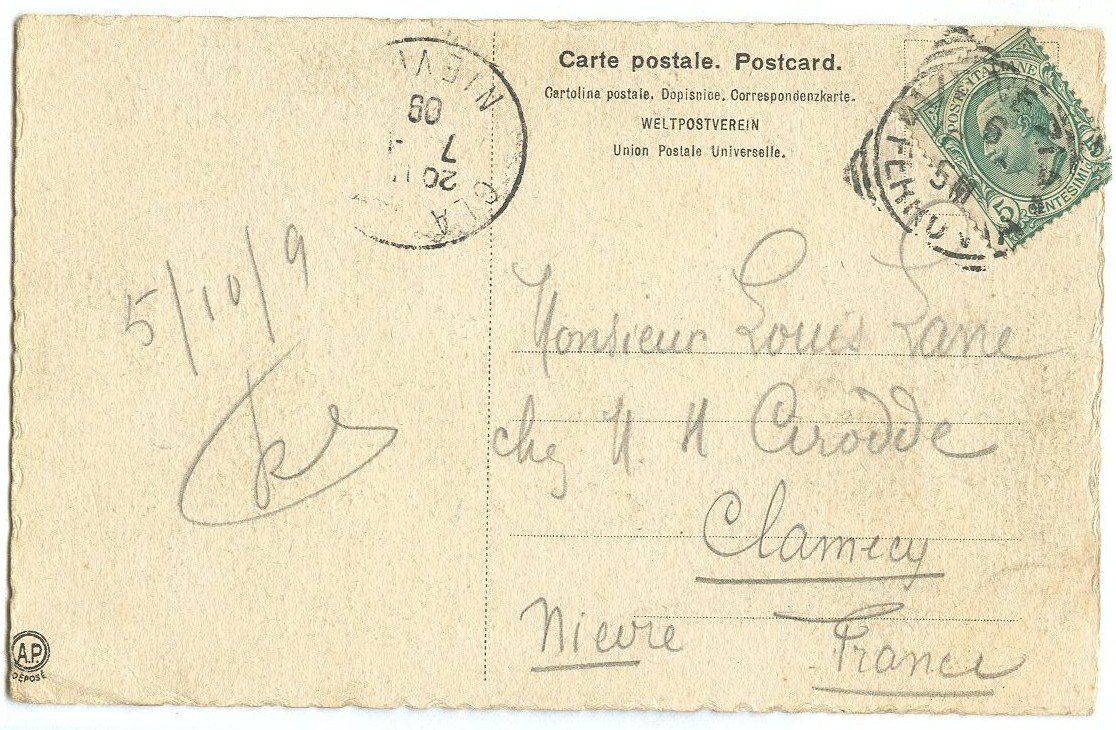 Carte postale. Postcard.
Cartolina postale. Dopisnice. Correspondenzkarte.
WELTPOSTVEREIN
Union Postale Universelle.
POSTE ITALIANE
5
CENTESIMI
NIEV
09
7
20
CLA
5/10/9
Monsieur Louis Lane
chez M. H
Clamecy
Nievre France
A.P.
DÉPOSÉ